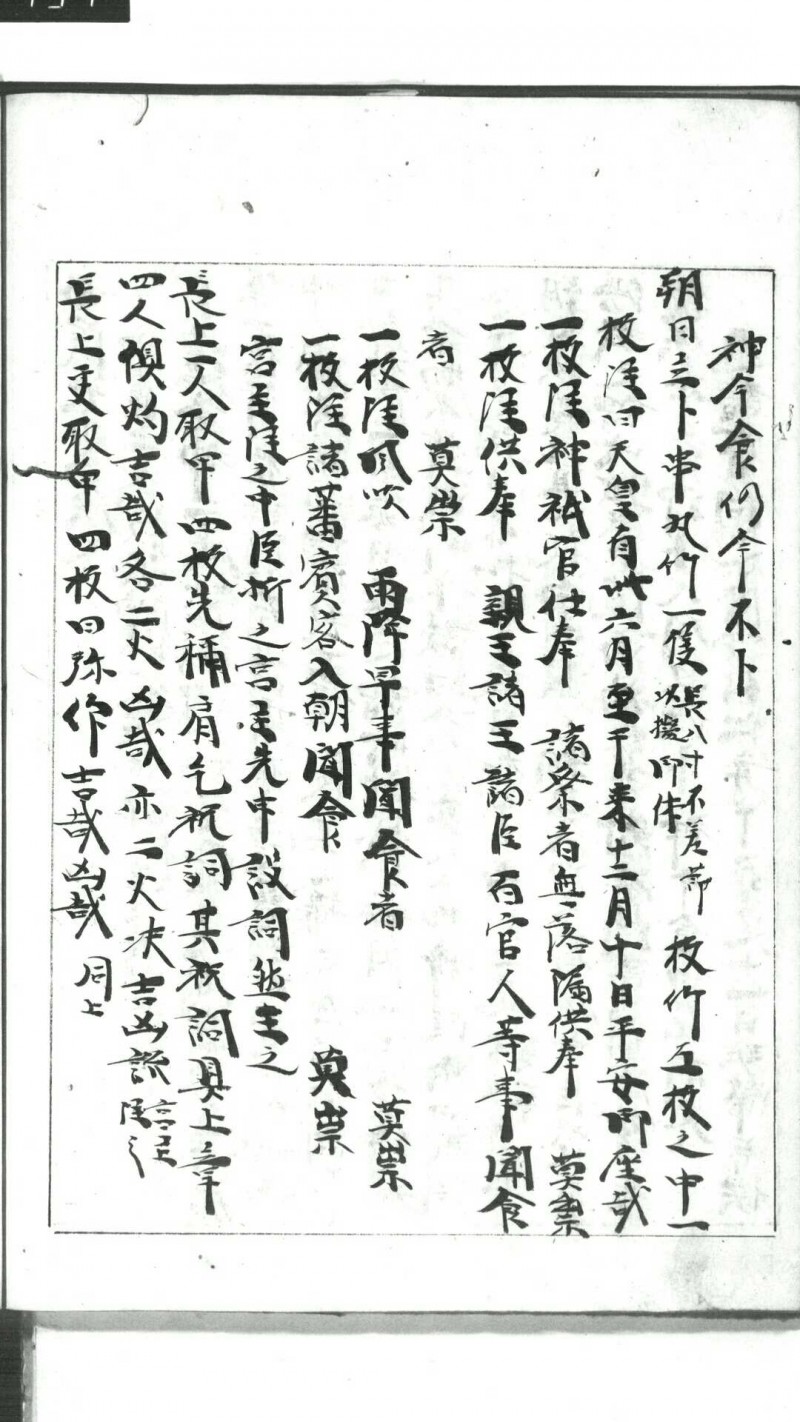 神今食仍今不卜
朔日 卜串 竹一隻 長八寸不差節 以擬御体 枚竹五枚之中一
枚注曰天皇自此六月至于来十二月十日平安御座哉
一枚注神祇官仕奉 諸祭者無落漏供奉 莫祟
一枚注供奉 親王諸王諸臣百官人等事聞食
者 莫祟
一枚注風吹 雨降旱事聞食者 莫祟
一枚注諸蕃賓客入朝聞食 莫祟
宮主注之中臣折之宮主先申設詞 之
長上一人取甲四枚先称肩乞祝詞其祝詞具上章
四人倶灼吉哉各二火凶哉亦二火决吉凶訖 宮主注之
長上更取甲四枚曰弥作吉哉凶哉 同上